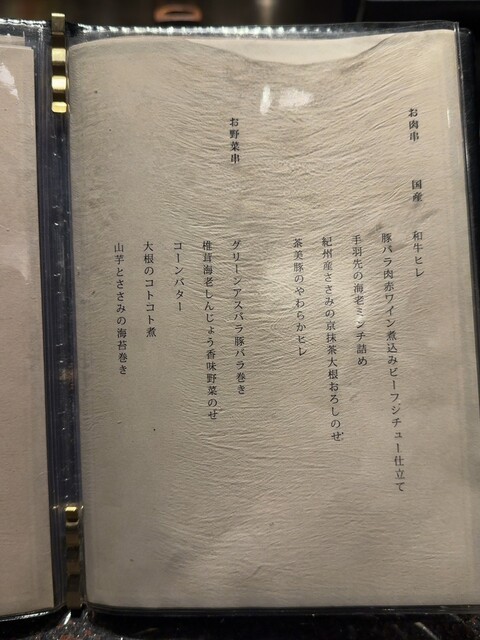 お肉串　国産　和牛ヒレ
豚バラ肉赤ワイン煮込みビーフジチュー仕立て
手羽先の海老ミンチ詰め
紀州産ささみの京抹茶大根おろしのせ
茶美豚のやわらかヒレ
お野菜串　グリーンアスパラ豚バラ巻き
椎茸海老しんじょう香味野菜のせ
コーンバター
大根のコトコト煮
山芋とささみの海苔巻き